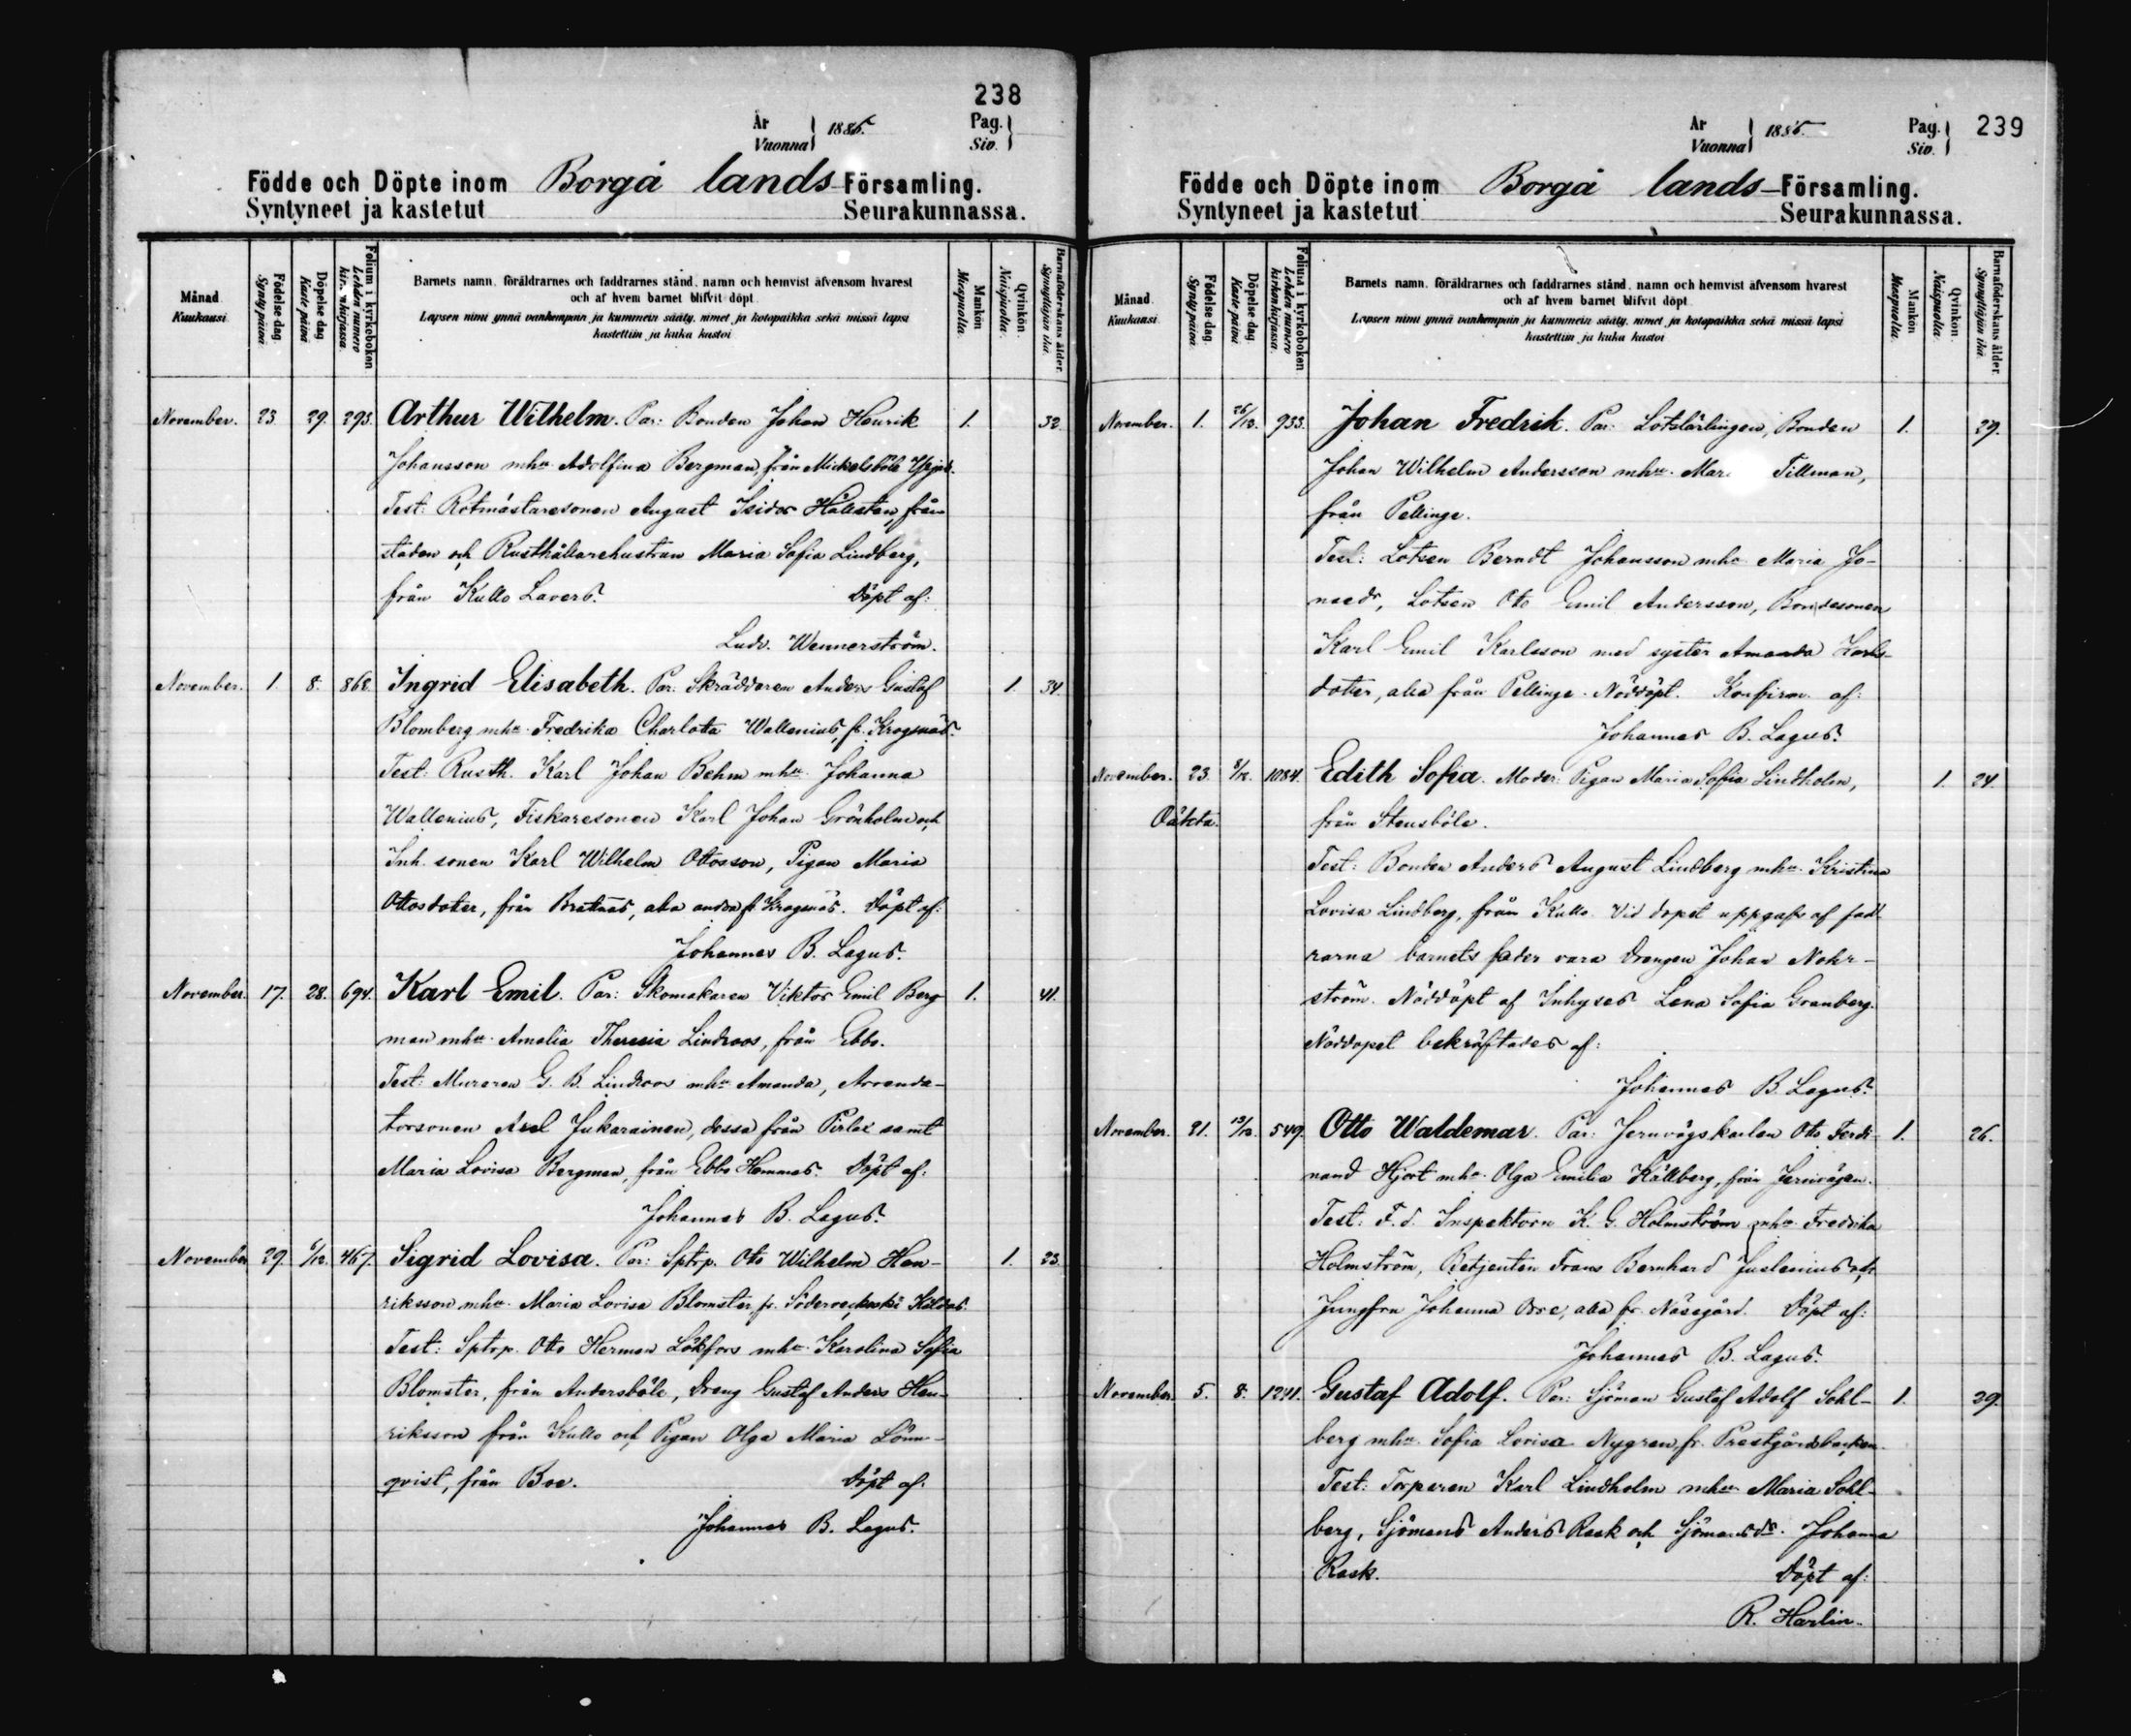 238
År Vuonna 1885.
Pag. Siv.
Födde och Döpte inom Borgå lands Församling.
Syntyneet ja kastetut Seurakunnassa.
Månad. Kuukausi.
Födelse dag. Synty päivä.
Döpelse dag. Kaste päivä.
Folium i kyrkoboken Lehden numero kirkonkirjassa.
Barnets namn, föräldrarnes och faddrarnes stånd, namn och hemvist äfvensom hvarest
och af hvem barnet blifvit döpt.
Lapsen nimi ynnä vanhempain ja kummein sääty, nimet ja kotopaikka sekä missä lapsi
kastettiin ja kuka kastoi
Mankön. Miespuolia.
Qvinkön. Naispuolia.
Barnaföderskans ålder. Synnyttäjän ikä.
November. 23. 29. 293. Arthur Wilhelm. Par: Bonden Johan Henrik 1. 32.
Johansson mhu Adolfina Bergman, från Mickelsböle
Test: Rotmästaresonen August Isidor från
staden och Rusthållarehustrun Maria Sofia Lindberg,
från Kullo Lavers. Döpt af:
Ludv. Wennerström.
November. 1. 8. 868. Ingrid Elisabeth. Par: Skräddaren Anders Gustaf 1. 34.
Blomberg mhu Fredrika Charlotta Wallenius, fr. Krogsnäs.
Test: Rusth. Karl Johan Behm mhu Johanna
Wallenius, Fiskaresonen Karl Johan Grönholm och
Inh. sonen Karl Wilhelm Ottosson, Pigan Maria
Ottosdoter, från Brattnäs, alla andra fr Krogsnäs. Döpt af:
Johannes B. Lagus.
November. 17. 28. 694. Karl Emil. Par: Skomakaren Viktor Emil Berg 1. 41.
man mhu Amalia Theresia Lindroos, från Ebbo.
Test: Muraren G. B. Lindroos mhu Amanda, Arrenda-
torsonen Axel Jukarainen, dessa från Pirlax samt
Maria Lovisa Bergman, från Ebbo Hemmas. Döpt af:
Johannes B. Lagus.
November 29. 6/12. 467. Sigrid Lovisa. Par: Sptrp. Otto Wilhelm Hen- 1. 23.
riksson mhu Maria Lovisa Blomster, fr. Södervekoski
Test: Sptrp. Otto Herman Löfkfors mhu Karolina Sofia
Blomster, från Andersböle, Dreng Gustaf Anders Hen-
riksson från Kullo och Pigan Olga Maria Lönn-
qvist, från Boe. Döpt af.
Johannes B. Lagus.
239
År Vuonna 1885.
Pag. Siv.
Födde och Döpte inom Borgå lands Församling.
Syntyneet ja kastetut Seurakunnassa.
Månad. Kuukausi.
Födelse dag. Synty päivä.
Döpelse dag. Kaste päivä
Folium i kyrkoboken. Lehden numero kirkonkirjassa.
Barnets namn, föräldrarnes och faddrarnes stånd, namn och hemvist äfvensom hvarest
och af hvem barnet blifvit döpt.
Lapsen nimi ynnä vanhempain ja kummein sääty, nimet ja kotopaikka sekä missä lapsi
kastettiin ja kuka kastoi
Mankön. Miespuolia.
Qvinkön. Naispuolia.
Barnaföderskans ålder. Synnyttäjän ikä.
November. 1. 26/12. 933. Johan Fredrik. Par: Lotslärlingen, Bonden 1. 29.
Johan Wilhelm Andersson mhu Mar. Tillman,
från Pellinge.
Test: Lotsen Berndt Johansson mhu Maria Jo-
nasdr, Lotsen Otto Emil Andersson, Bondesonen
Karl Emil Karlsson med syster Amanda Karls-
doter, alla från Pellinge. Nöddöpt. Konfirm. af:
Johannes B. Lagus.
November. 23. 8/12. 1084. Edith Sofia. Moder: Pigan Maria Sofia Lindholm, 1. 24.
Oäkta. från Stensböle.
Test: Bonden Anders August Lindberg mhu Kristina
Lovisa Lindberg, från Kullo. Vid dopet uppgafs af fadd-
rarna barnets fader vara Drengen Johan Nohr-
ström. Nöddöpt af Inhyses Lena Sofia Granberg.
Nöddopet bekräftades af:
Johannes B. Lagus.
November. 21. 13/12. 549. Otto Waldemar. Par: Jernvägskarlen Otto Ferdi- 1. 26.
nand Hjort mhu Olga Emilia Källberg, från Jernvägen.
Test: F.d. Inspektorn K. G. Holmström mhu Fredrika
Holmström, Betjenten Frans Bernhard Juslenius och
Jungfru Johanna alla fr. Näsegård. Döpt af:
Johannes B. Lagus.
November. 5. 8. 1241. Gustaf Adolf. Par: Sjöman Gustaf Adolf Sohl- 1. 29.
berg mhu Sofia Lovisa Nygren, fr. Prestgårdsbacken.
Test: Torparen Karl Lindholm mhu Maria Sohl-
berg, Sjömans Anders Rask och Sjömansdr. Johanna
Rask. Döpt af:
R. Harlin.